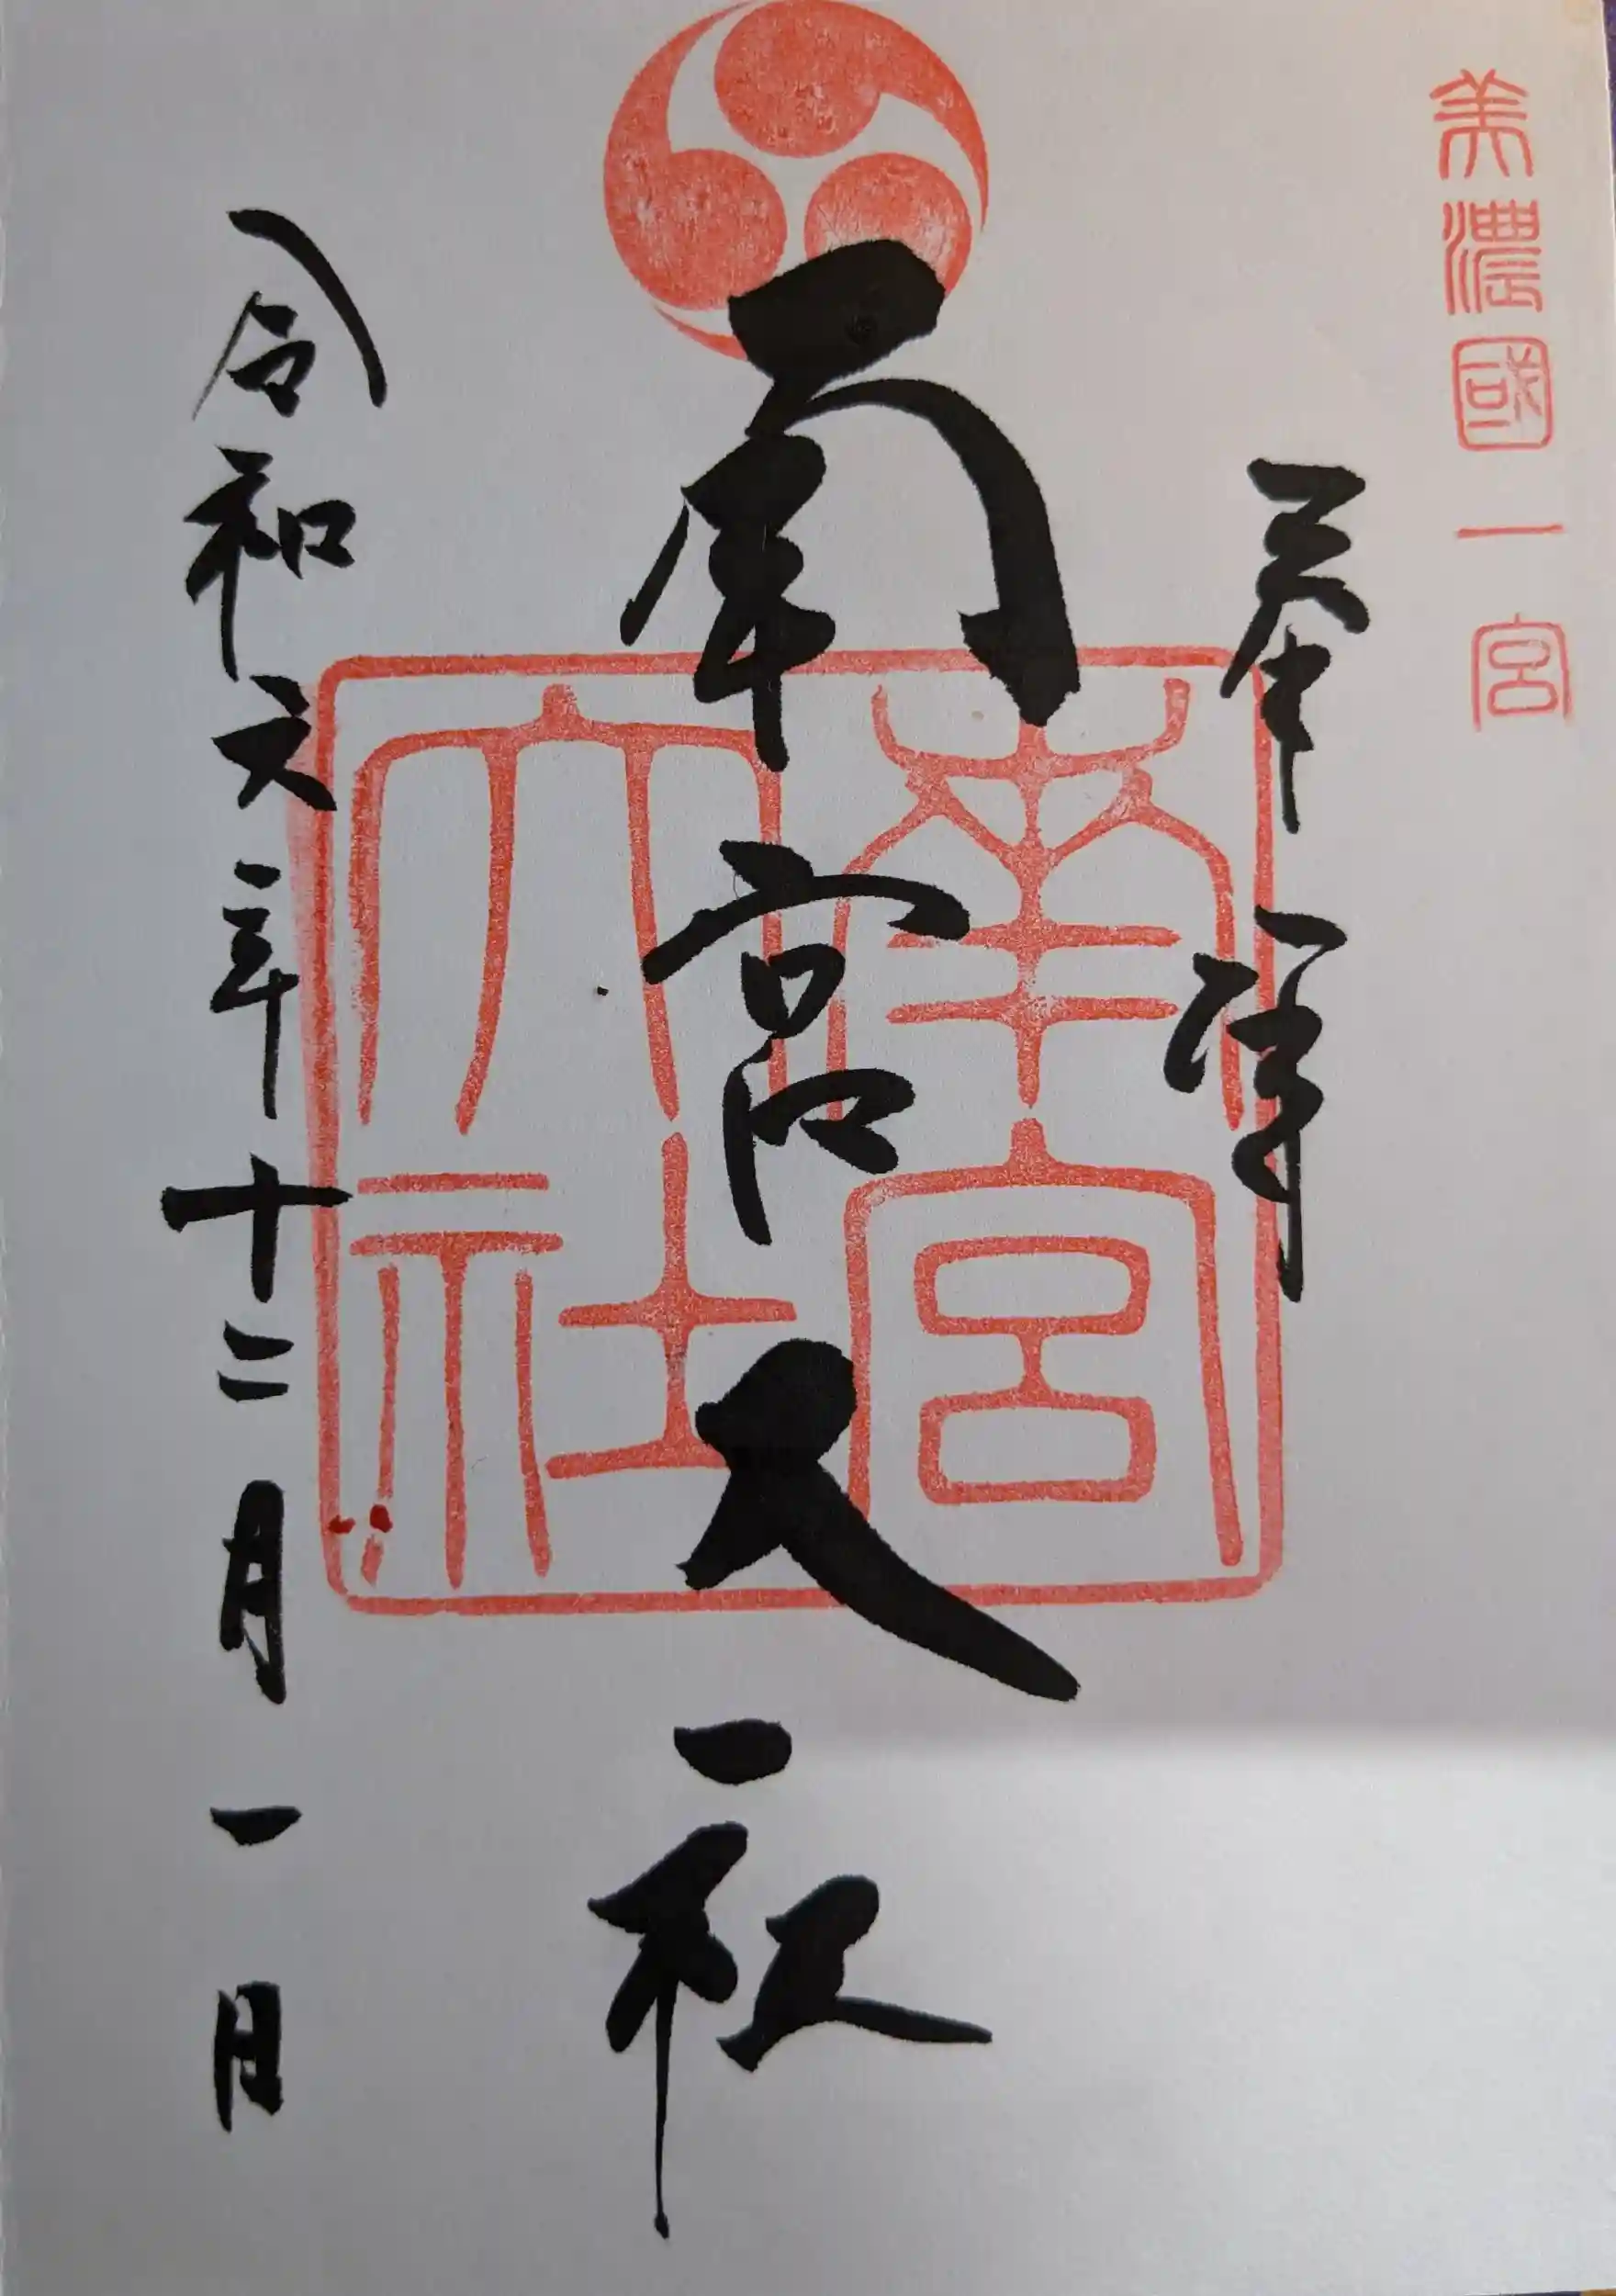 美濃國一宮
奉拝
南宮大社
南宮
大社
令和元年十二月一日